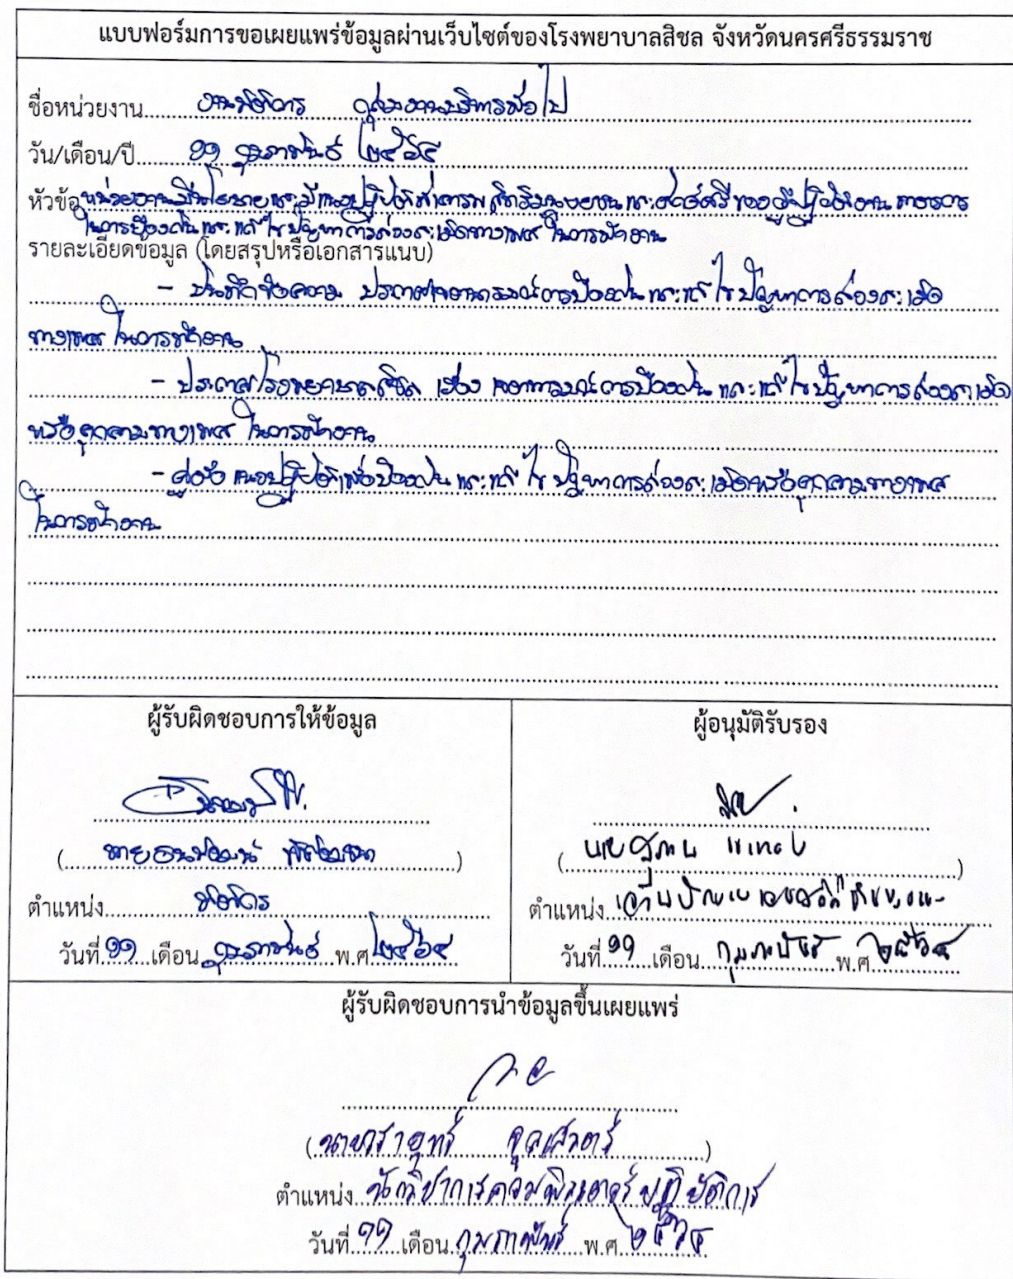 แบบฟอร์มการขอเผยแพร่ข้อมูลผ่านเว็บไซต์ของโรงพยาบาลสิชล จังหวัดนครศรีธรรมราช
ชื่อหน่วยงาน งานนิติการ กลุ่มงานบริหารทั่วไป
วัน/เดือน/ปี ๑๑ กุมภาพันธ์ ๒๕๖๔
หัวข้อ หน่วยงานมีนโยบายและมีแนวปฏิบัติ เคารพสิทธิมนุษยชนและศักดิ์ศรีของผู้ปฏิบัติงาน
ในการป้องกันและแก้ไขปัญหาการล่วงละเมิดทางเพศในการทำงาน
รายละเอียดข้อมูล (โดยสรุปหรือเอกสารแนบ)
- บันทึกข้อความ ประกาศเจตนารมณ์การป้องกันและแก้ไขปัญหาการล่วงละเมิด
ทางเพศในการทำงาน
- ประกาศโรงพยาบาลสิชล เรื่อง เจตนารมณ์การป้องกันและแก้ไขปัญหาการล่วงละเมิด
หรือคุกคามทางเพศในการทำงาน
- คู่มือ แนวปฏิบัติเพื่อป้องกันและแก้ไขปัญหาการล่วงละเมิดหรือคุกคามทางเพศ
ในการทำงาน
ผู้รับผิดชอบการให้ข้อมูล
ผู้อนุมัติรับรอง
(นายธนพัฒน์ )
(นาย )
ตำแหน่ง นิติกร
ตำแหน่ง
วันที่ ๑๑ เดือน กุมภาพันธ์ พ.ศ. ๒๕๖๔
วันที่ ๑๑ เดือน กุมภาพันธ์ พ.ศ. ๒๕๖๔
ผู้รับผิดชอบการนำข้อมูลขึ้นเผยแพร่
(นาย )
ตำแหน่ง นักวิชาการคอมพิวเตอร์ปฏิบัติการ
วันที่ ๑๑ เดือน กุมภาพันธ์ พ.ศ. ๒๕๖๔